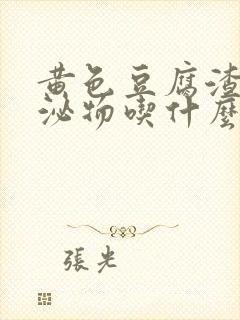 黄色豆腐渣
泌物喫什麼
張光